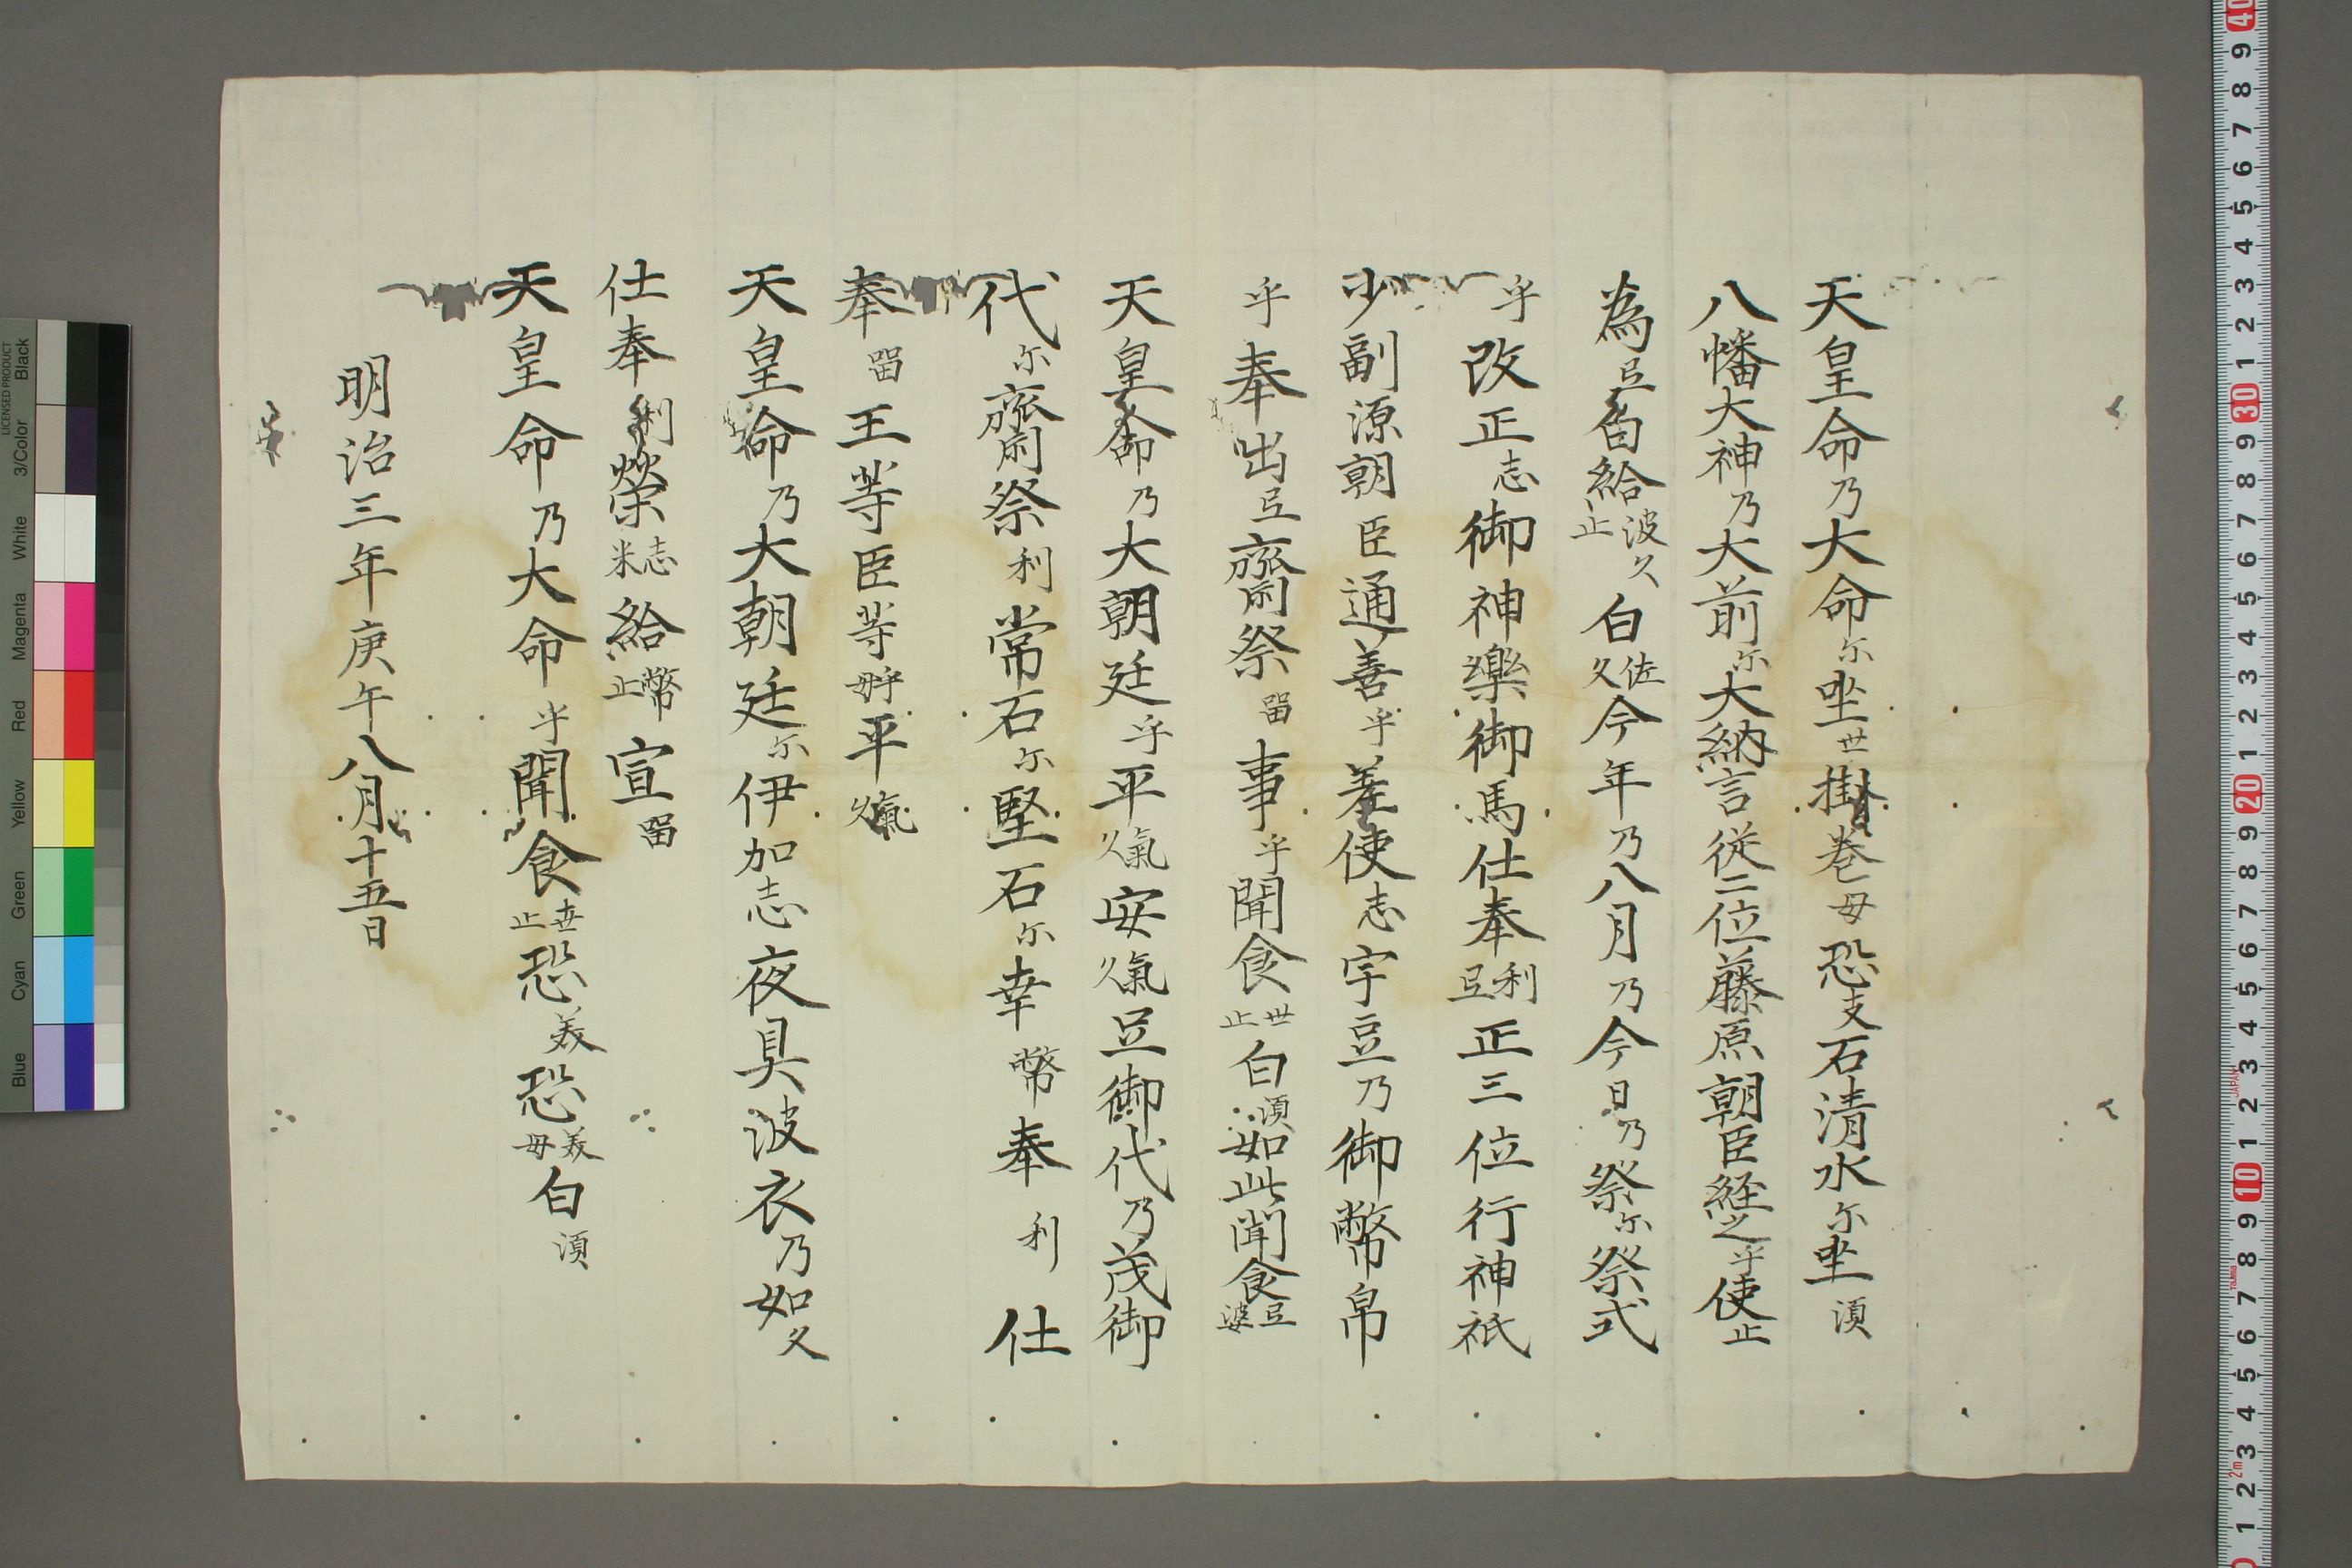 天皇命乃大命尓坐世掛巻毋恐支石清水尓坐須
八幡大神乃大前尓大納言従二位藤原朝臣経之乎使止
為弖白給波久止白佐久今年乃八月乃今日乃祭尓祭式
乎改正志御神樂御馬仕奉利弖正三位行神祇
少副源朝臣通善乎差使志宇豆乃御幣帛
乎奉出弖齋祭留事乎聞食世止白須如此聞食弖婆
天皇命乃大朝廷乎平久氣安久氣立御代乃茂御
代尓齋祭利常石尓堅石尓幸幣奉利仕
奉留王等臣等乎毋平久氣
天皇命乃大朝廷尓伊加志夜具波衣乃如久
仕奉利榮志米給幣止宣留
天皇命乃大命乎聞食世止恐美恐美毋白須
明治三年庚午八月十五日
Black
3/Color
White
Magenta
Red
Yellow
Green
Cyan
Blue
LICENSED PRODUCT